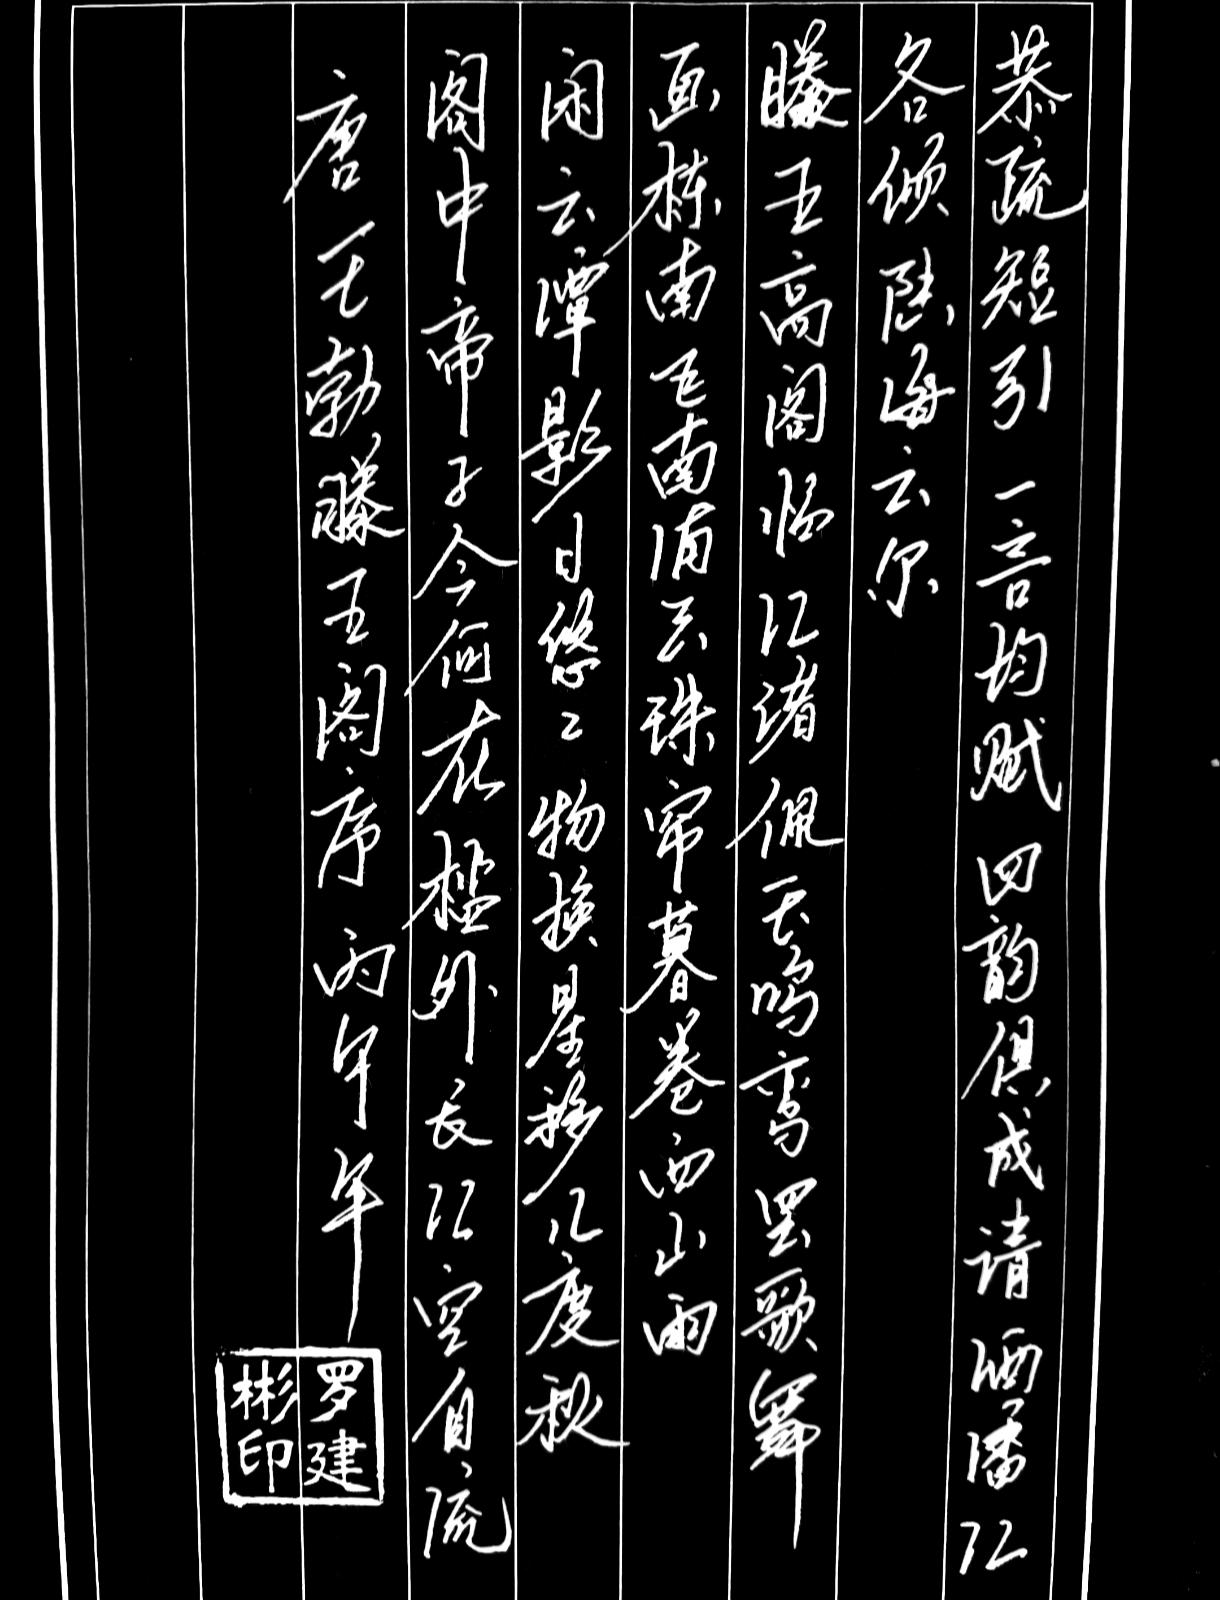 恭疏短引一言均赋四韵俱成请洒潘江
各倾陆海云尔
滕王高阁临江渚佩玉鸣鸾罢歌舞
画栋南飞南浦云珠帘暮卷西山雨
闲云潭影日悠々物换星移几度秋
阁中帝子今何在槛外长江空自流
唐王勃滕王阁序丙午年
罗建
彬印